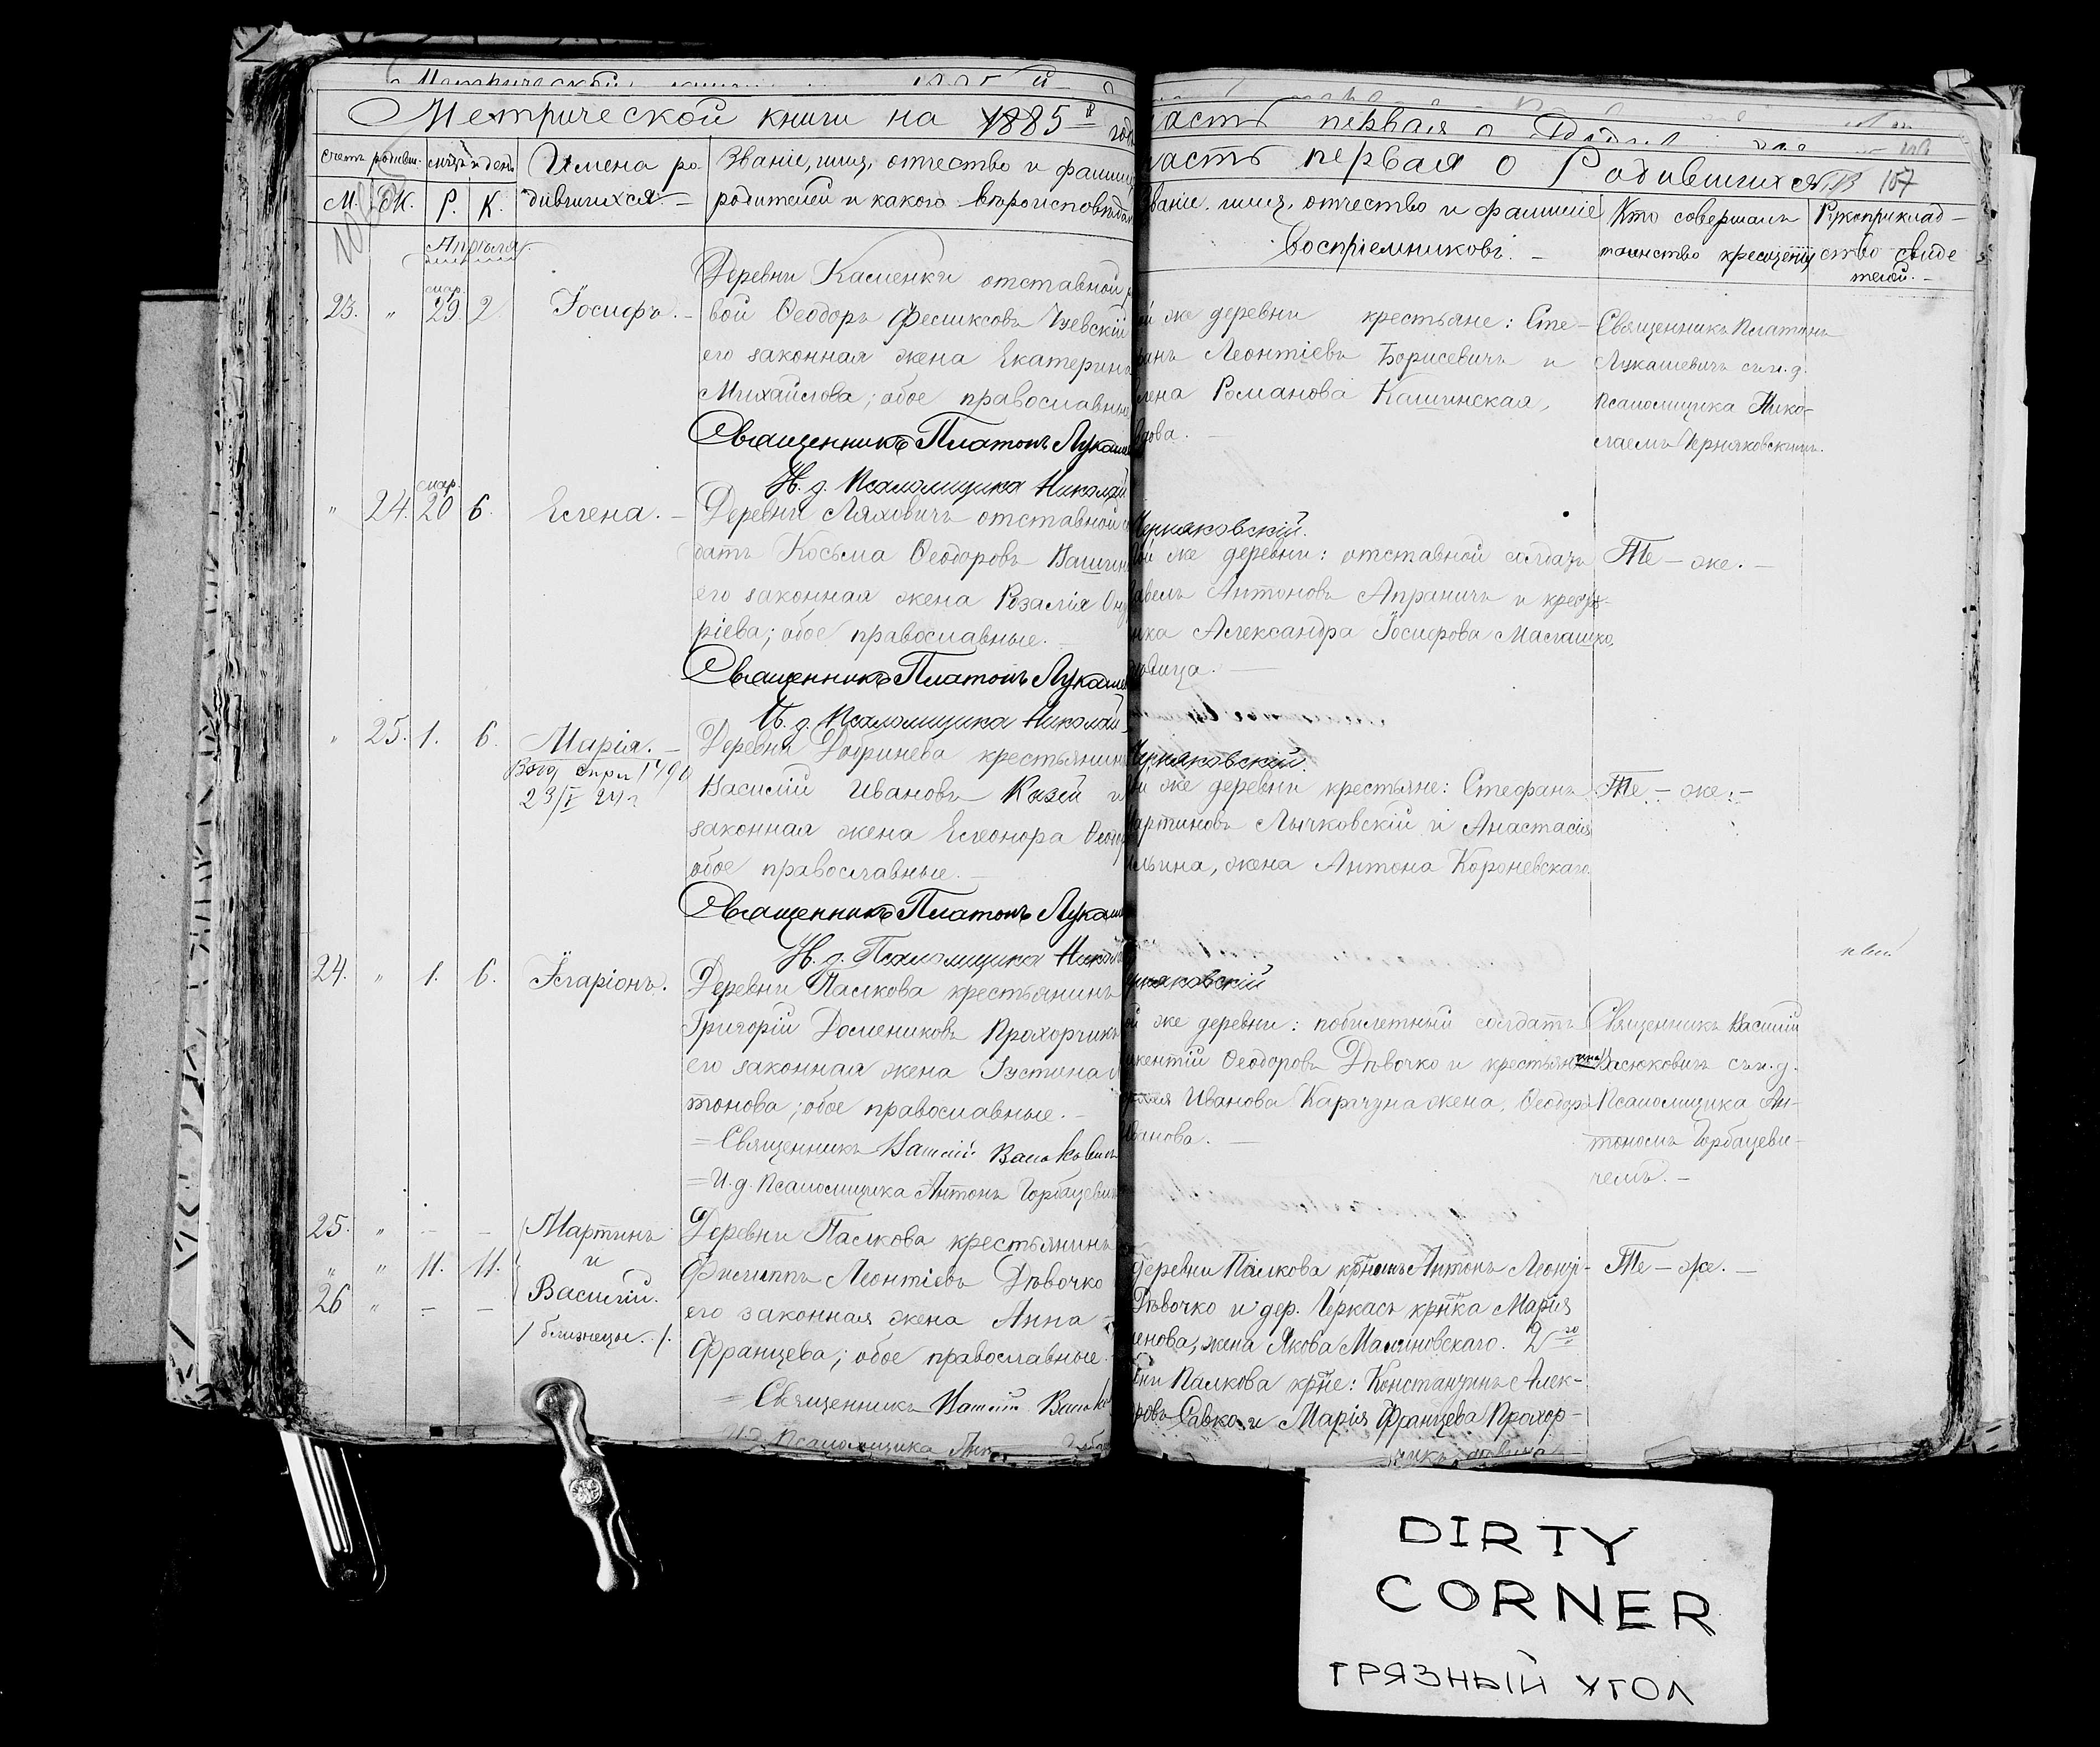 Метрической книги на 1885й годъ
часть первая о Родившихся 107
счетъ родивш.
М. Ж.
Р. К.
Имена ро
дившихся
Званіе, имя, отчество и фамилія
родителей и какого вѣроисповѣдан
Званіе, имя, отчество и фамилія
воспріемниковъ.
Кто совершалъ
таинство крещенія
Рукоприклад-
ство свиде
телей.
Апрѣля
23. " мар. 29. 2. Іосифъ.
Деревни Каменки отставной
вой Ѳеодоръ
его законная жена Екатерина
Михайлова; обое православные
Священникъ Платонъ Лукаше
И. д. Псаломщика Николай
Черняковскій.
же деревни крестьяне: Сте-
фанъ Леонтіевъ Борисевичъ и
Елена Романова Кашинская,
вдова.
Священникъ Платонъ
Лукашевичъ съ и. д.
Псаломщика Нико-
лаемъ Черняковскимъ.
" 24. мар. 20 6. Елена.
Деревни Ляховичъ отставной
датъ Косьма Ѳеодоровъ
его законная жена Розалія
ріева; обое православные.
Священникъ Платонъ Лукаше
И. д. Псаломщика Николай
Черняковскій.
же деревни: отставной солдатъ
Павелъ Антоновъ Апраничъ и крестьян-
ка Александра Іосифова
дѣвица.
Тѣ-же.
" 25. 1. 6. Марія.
23/I 24г
Деревни крестьянинъ
Василій Ивановъ Козей и
законная жена Елеонора
обое православные.
Священникъ Платонъ Лукаше
И. д. Псаломщика Николай
Черняковскій
же деревни крестьяне: Стефанъ
Мартиновъ Лычковскій и Анастасія
Ильина, жена Антона Короневскаго.
Тѣ-же.
24. " 1. 6. Иларіонъ.
Деревни Палкова крестьянинъ
Григорій Домениковъ Прохорчикъ
его законная жена Іустина
тонова; обое православные.
= Священникъ Василій
= И. д. Псаломщика Антонъ Горбацевичъ
же деревни: побилетный солдатъ
Викентій Ѳеодоровъ Дѣвочко и крестьянка
Иванова Карчуна жена, Ѳеодора
Иванова.
Священникъ Василій
Васюковичъ съ и. д.
Псаломщика Ан-
тономъ Горбацеви-
чемъ.
25. " - - Мартинъ
" " 11. 11. и
26 " - - Василій.
/близнецы./
Деревни Палкова крестьянинъ
Филиппъ Леонтіевъ Дѣвочко
его законная жена Анна
Францева; обое православные.
= Священникъ Василій
И. д. Псаломщика
деревни Палкова Антонъ Леонті-
Дѣвочко и дер. Черкасъ крнка Марія
женова, жена Якова Малиновскаго. 2го
Палкова крне: Константинъ Алек-
ровъ Савко и Марія Францева Прохор-
чикъ, дѣвица
Тѣ-же.
DIRTY
CORNER
ГРЯЗНЫЙ УГОЛ